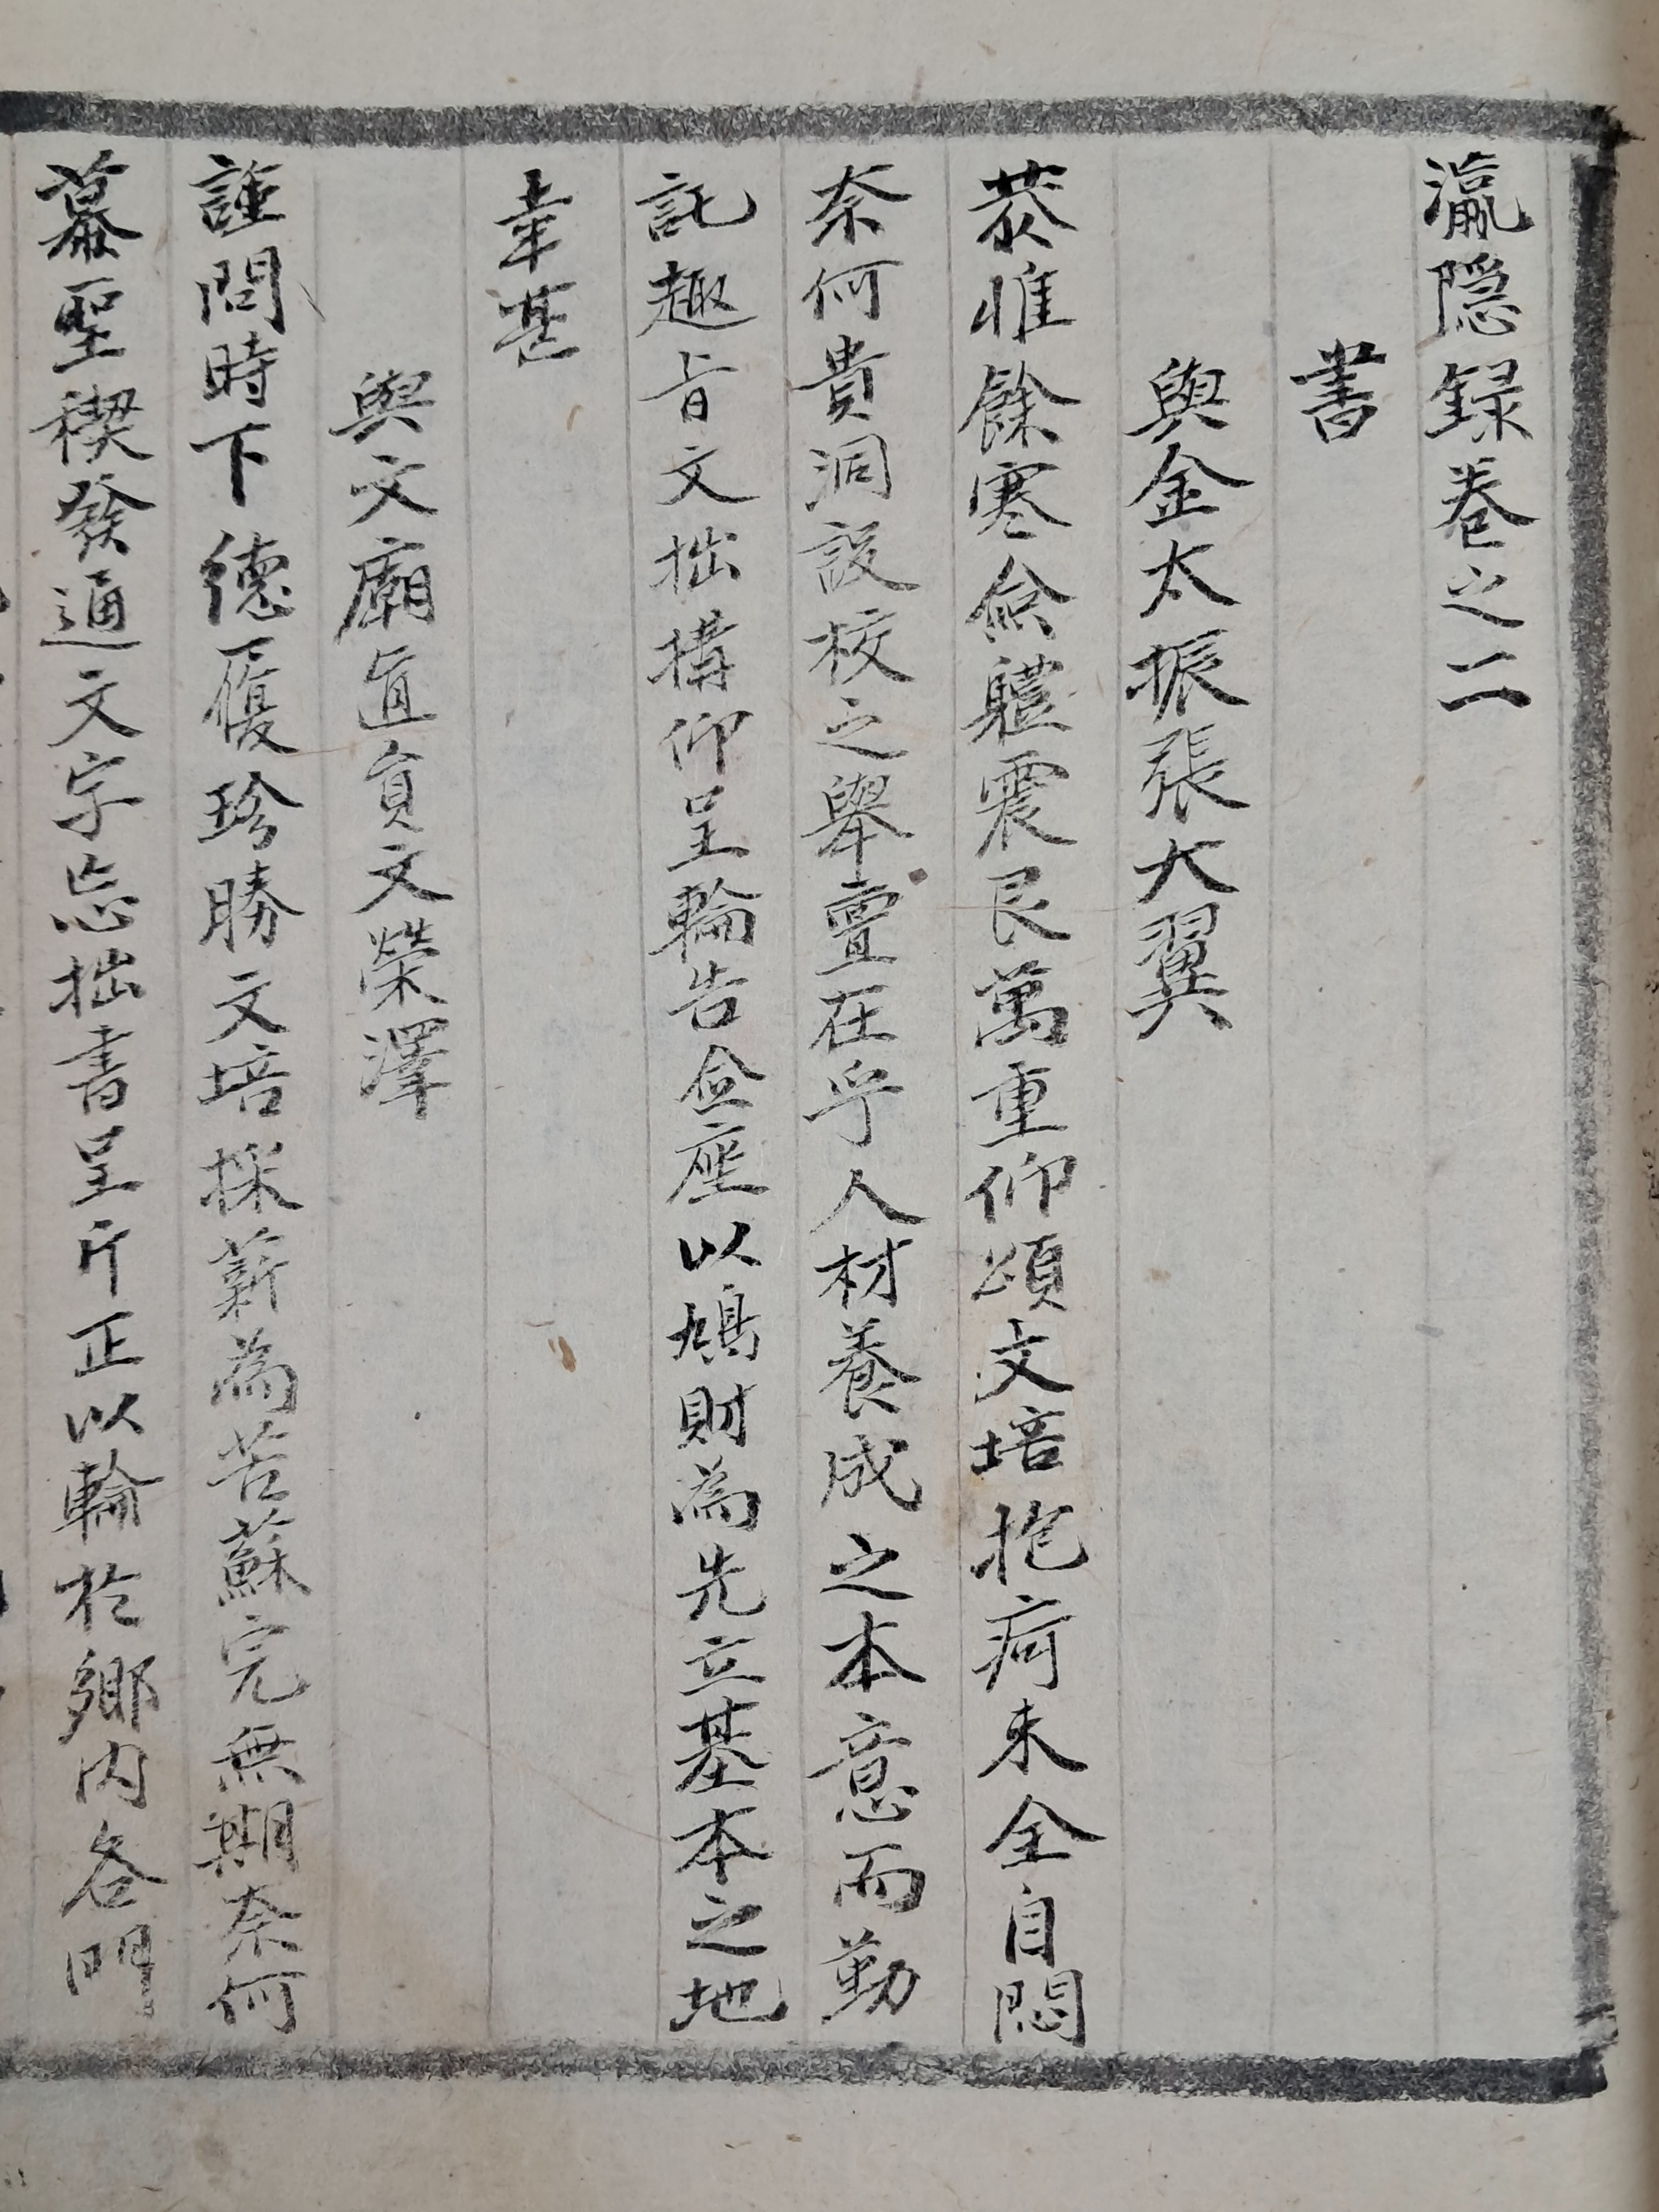 瀛隱録卷之二
書
與金太振張大翼
恭惟餘寒僉軆震艮萬重仰頌文培抱痾未全自悶
奈何貴洞設校之舉亶在乎人材養成之本意而勤
託趣旨文拙構仰呈輪告僉座以鳩財為先立基本之地
幸甚
與文廟直員文榮澤
謹問時下德履珍勝文培採薪為苦蘇完無期奈何
慕聖稧發通文字忘拙書呈斤正以輪於鄉內各門